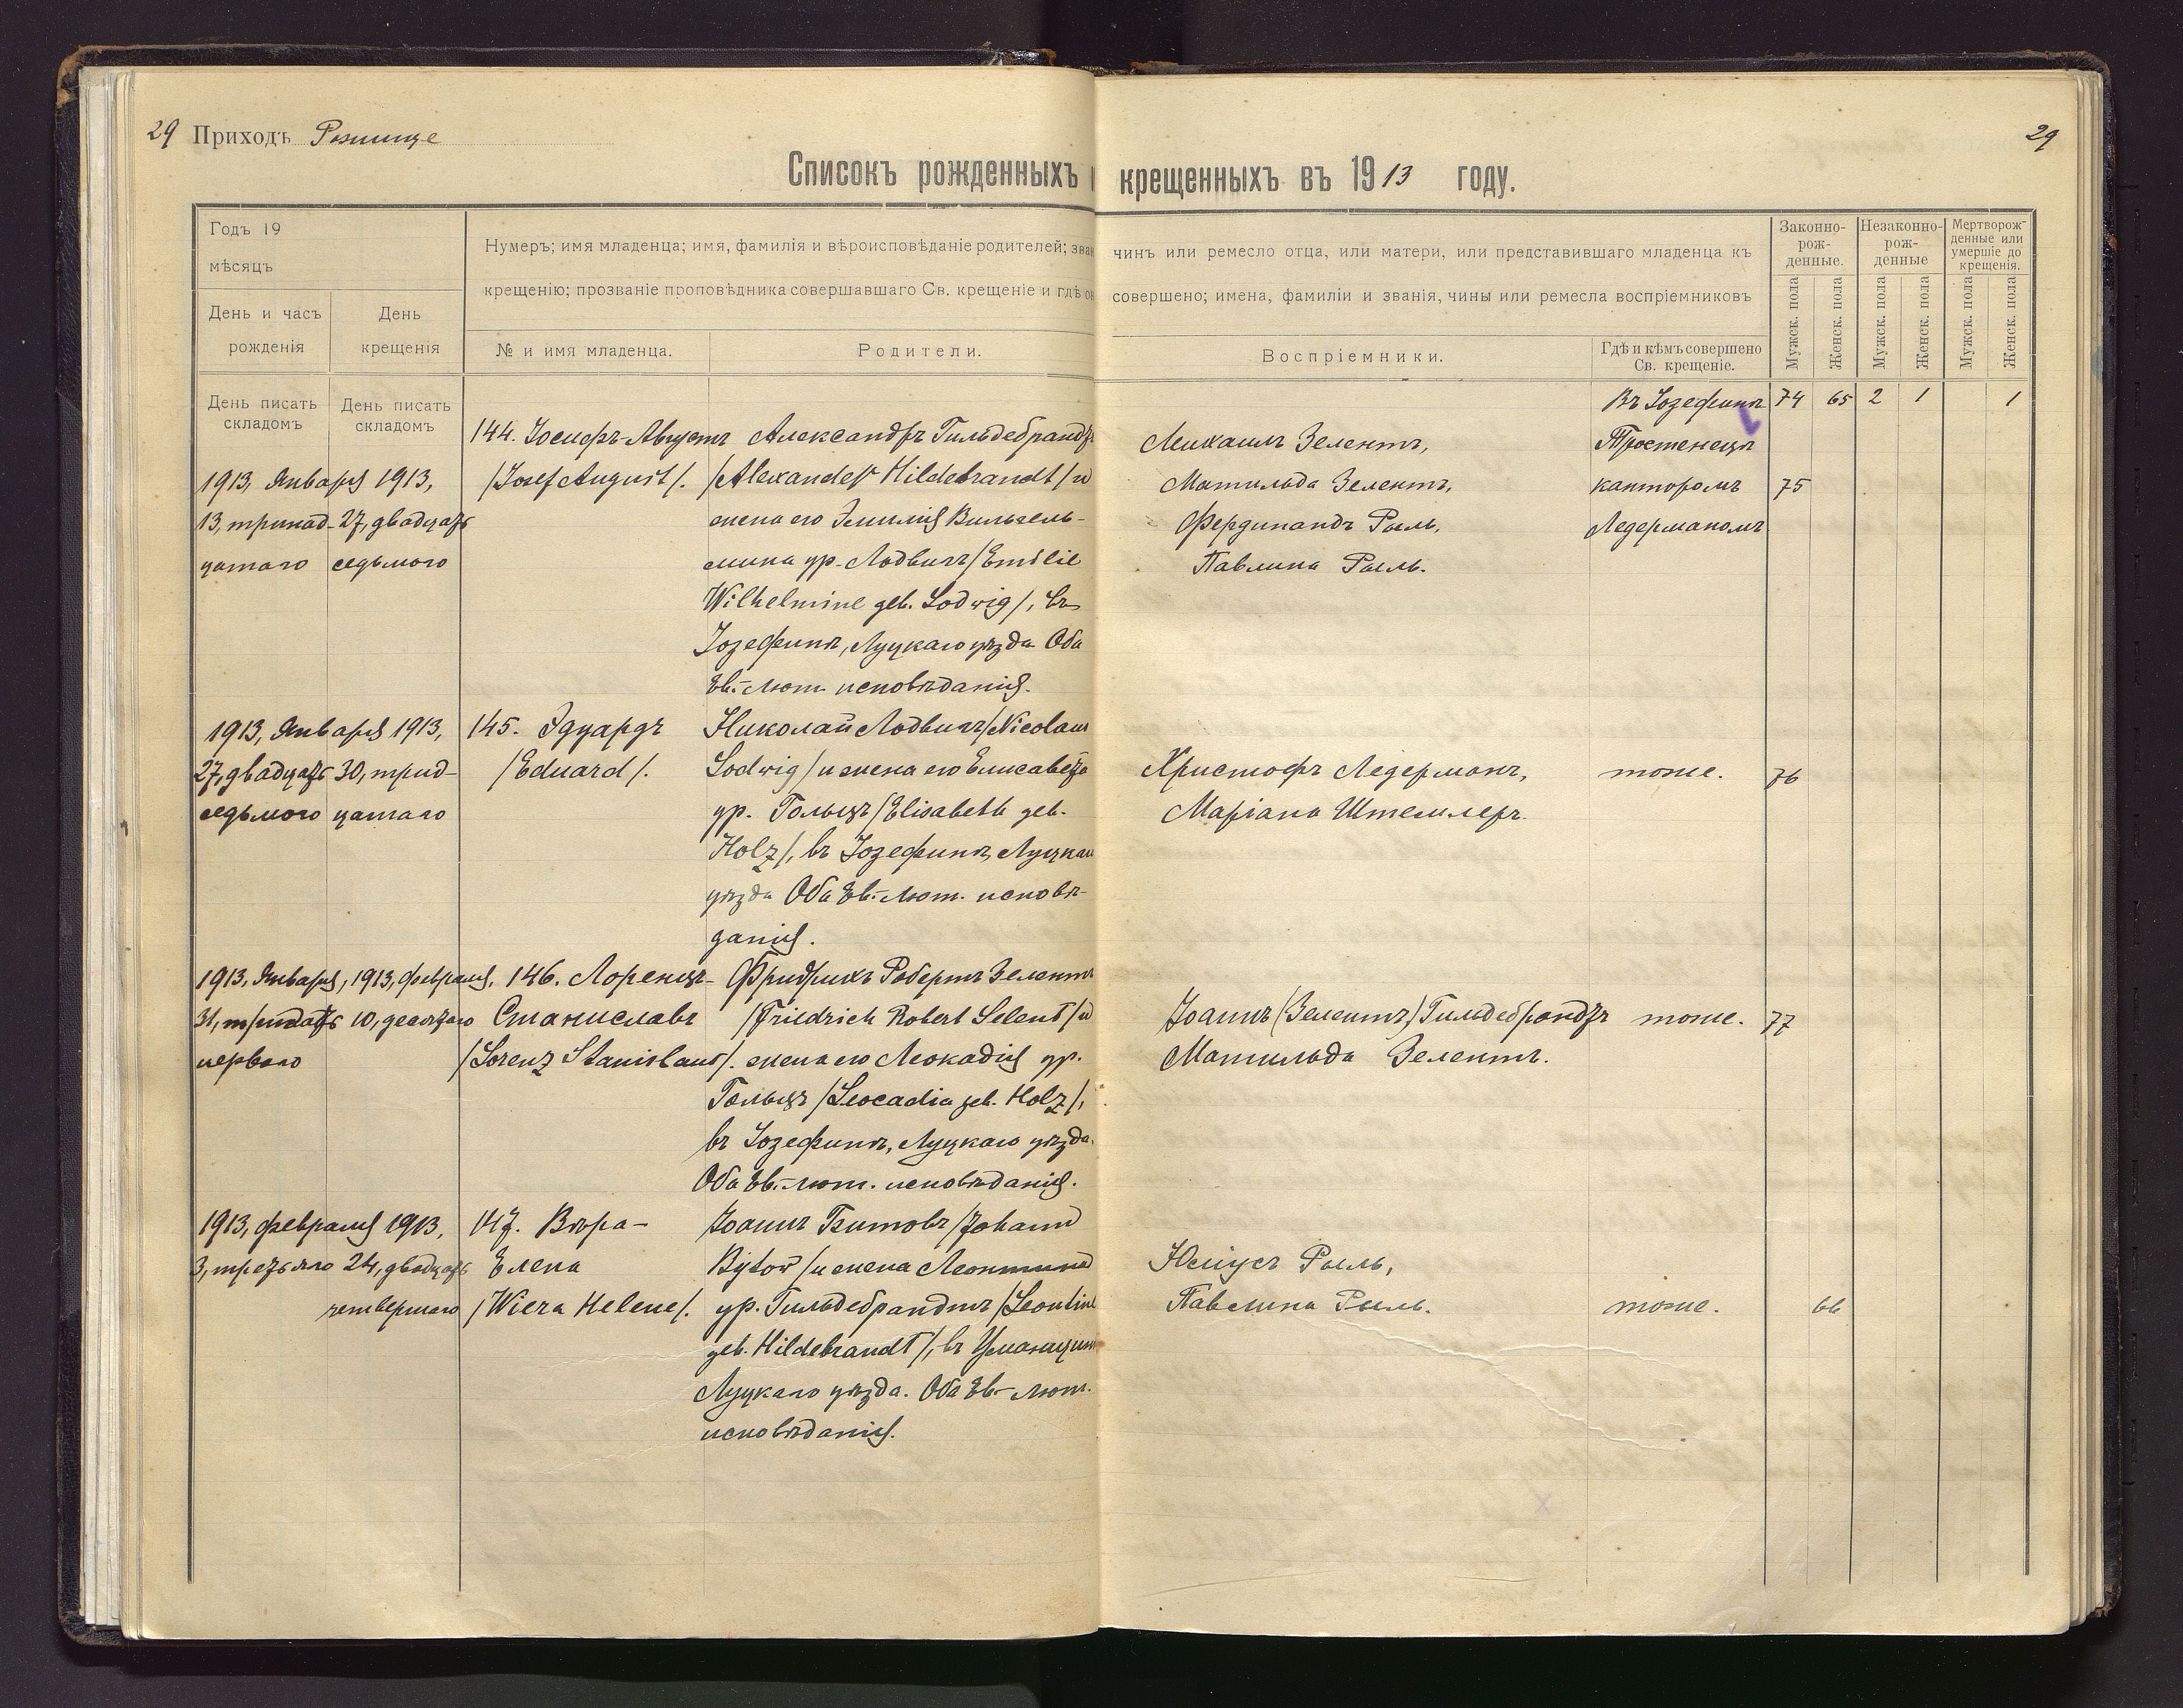 29 Приходъ Рожище
29
Списокъ рожденныхъ и крещенныхъ въ 1913 году.
Годъ 19
мѣсяцъ
День и часъ рожденія
День крещенія
День писать складомъ
День писать складомъ
Нумеръ; имя младенца; имя, фамилія и вѣроисповѣданіе родителей; зван
чинъ или ремесло отца, или матери, или представившаго младенца къ
крещенію; прозваніе проповѣдника совершавшаго Св. крещеніе и гдѣ он
совершено; имена, фамиліи и званія, чины или ремесла воспріемниковъ
№ и имя младенца.
Родители.
Воспріемники.
Гдѣ и кѣмъ совершено
Св. крещеніе.
Законно-
рож-
денные.
Незаконно-
рож-
денные
Мертворож-
денные или
умершіе до
крещенія.
Мужск. пола
Женск. пола
Мужск. пола
Женск. пола
Мужск. пола
Женск. пола
74 65 2 1 1
1913, Января 1913,
13, тринад- 27, двадцать
цатаго седьмого
144. Іосифъ-Августъ
/Josef August/.
Александръ Гильдебрандтъ
/Alexander Hildebrandt/ и
жена его Эмилія Вильгель-
мина ур. Лодвигъ /Emilie
Wilhelmine geb. Lodwig/, въ
Іозефинѣ, Луцкаго уѣзда Оба
Ев.-Лют. исповѣданія.
Михаилъ Зелентъ,
Матильда Зелентъ,
Фердинандъ Рыль,
Павлина Рыль.
Въ Іозефинѣ
Тростенецъ
канторомъ
Ледерманомъ
75
1913, Января 1913,
27, двадцать 30, трид-
седьмого цатаго
145. Эдуардъ
/Eduard/.
Николай Лодвигъ /Nicolaus
Lodwig/ и жена его Елисавета
ур. Гольцъ /Elisabeth geb.
Holz/, въ Іозефинѣ, Луцкаго
уѣзда Оба Ев.-Лют. исповѣ-
данія.
Христофъ Ледерманъ,
Маріана Штемлеръ.
тоже.
76
1913, Января, 1913, февраля,
31, тридцать 10, десятаго
перваго
146. Лоренцъ-
Станиславъ
/Lorenz Stanislaus/.
Фридрихъ Робертъ Зелентъ
/Friedrich Robert Selent/ и
жена его Леокадія ур.
Гольцъ /Leocadia geb. Holz/,
въ Іозефинѣ, Луцкаго уѣзда.
Оба Ев.-лют. исповѣданія.
Іоаннъ (Зелентъ) Гильдебрандтъ
Матильда Зелентъ.
тоже.
77
1913, февраля 1913,
3, третьяго 24, двадцать
четвертаго
147. Вѣра-
Елена
/Wiera Helene/.
Іоаннъ Бытовъ /Johann
Bytow/ и жена Леонтина
ур. Гильдебрандтъ /Leontine
geb. Hildebrandt/, въ
Луцкаго уѣзда. Оба Ев.-лют.
исповѣданія.
Юліусъ Рыль,
Павлина Рыль.
тоже.
66